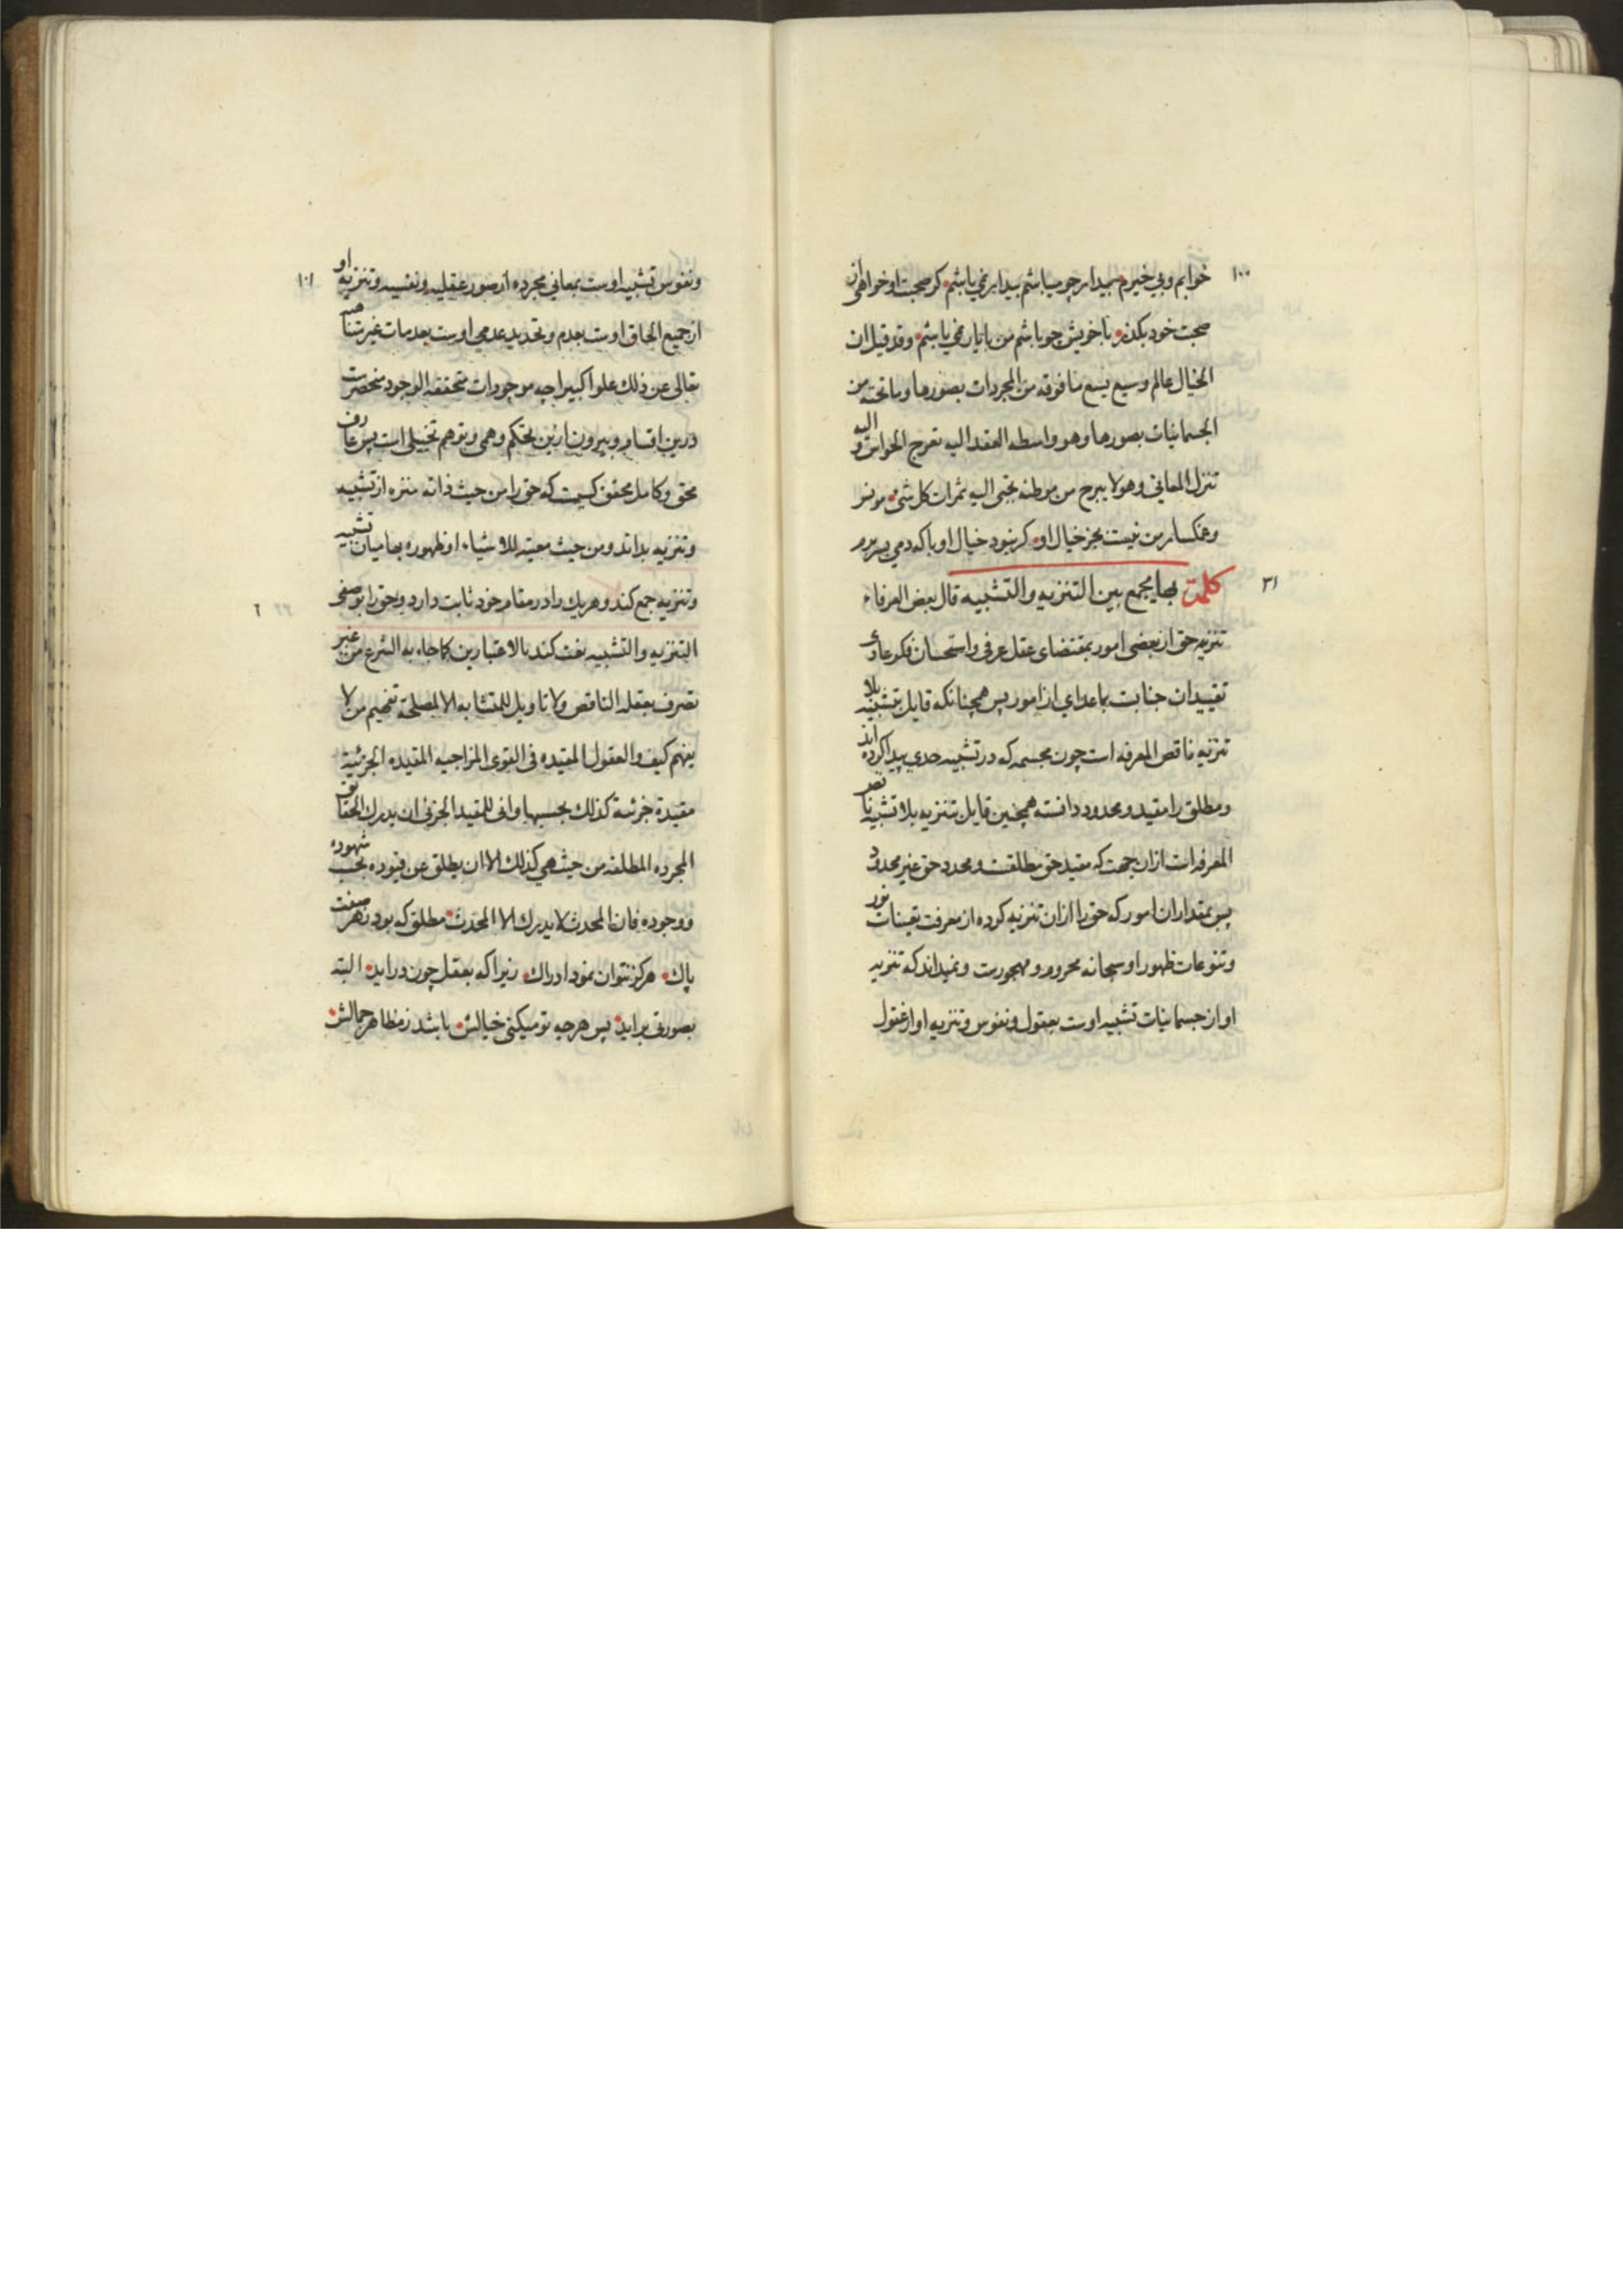 ١٠٠
خوابم وبي خبرم بيدار چو ميباشم بيدار نمي باشم كر صحبت او خواهى از
صحبت خود بكذر با خويش چو باشم من با يار نمي باشم وقد قيل ان
الخيال عالم وسيع يسع ما فوقه من المجردات بصورها وما تحته من
الجسمانيات بصورها وهو واسطه العقد اليه تعرج الحواس و اليه
تنزل المعاني وهو لا يبرح من موطنه تجبى اليه ثمرات كل شئ مونس
وغمكسار من نيست بجز خيال او كر نبود خيال او با كه دمي بسر برم
٣١
كلمة بها يجمع بين التنزيه والتشبيه قال بعض العرفاء
تنزيه حق از بعضى امور بمقتضاى عقل عرفى واستحسان فكر عادى
تقييد ان جنابست بما عداي ان امور پس همچنانكه قايل بتشبيه بلا
تنزيه ناقص المعرفه است چون مجسمه كه در تشبيه حدي پيدا كرده اند
ومطلق را مقيد ومحدود دانسته همچنين قايل بتنزيه بلا تشبيه ناقص
المعرفه است ازان جهت كه مقيد حق مطلقست ومحدد حق غير محدود
پس بمقدار ان امور كه حق را ازان تنزيه كرده از معرفت تعينات نور
وتنوعات ظهور او سبحانه محروم ومهجورست ونميداند كه تنزيه
او از جسمانيات تشبيه اوست بعقول ونفوس وتنزيه او از عقول
١٠١
ونفوس تشبيه اوست بمعاني مجرده از صور عقليه ونفسيه وتنزيه او
از جميع الحاق اوست بعدم وتحديد عدمي اوست بعدمات غير متناهيه
تعالى عن ذلك علوا كبيرا چه موجودات متحققه الوجود منحصرست
درين اقسام وبيرون ازين تحكم وهمى وتوهم تخيلى است پس عارف
محق وكامل محقق كسيست كه حق را من حيث ذاته منزه از تشبيه
وتنزيه بداند ومن حيث معيته للاشياء او ظهوره بها ميان تشبيه
وتنزيه جمع كند وهريك را در مقام خود ثابت دارد وحق را بوصفى
التنزيه والتشبيه نعت كند بالاعتبارين كما جاء به الشرع من غير
تصرف بعقله الناقص ولا تاويل للمتشابه الا لمصلحة تفهيم من لا
يفهم كيف والعقول المقيده فى القوى المزاجيه المقيده الجزئية
مقيدة جزئية كذلك بحسبها وانى للمقيد الجزئى ان يدرك الحقائق
المجرده المطلقه من حيث هي كذلك الا ان يطلق عن قيوده بحسب شهوده
ووجوده فان المحدث لا يدرك الا المحدث مطلق كه بود ز هر صفت
پاك هركز نتوان نمود ادراك زيرا كه بعقل چون درايد البته
بصورتى برايد پس هرچه تو ميكنى خيالش باشد ز مظاهر جمالش